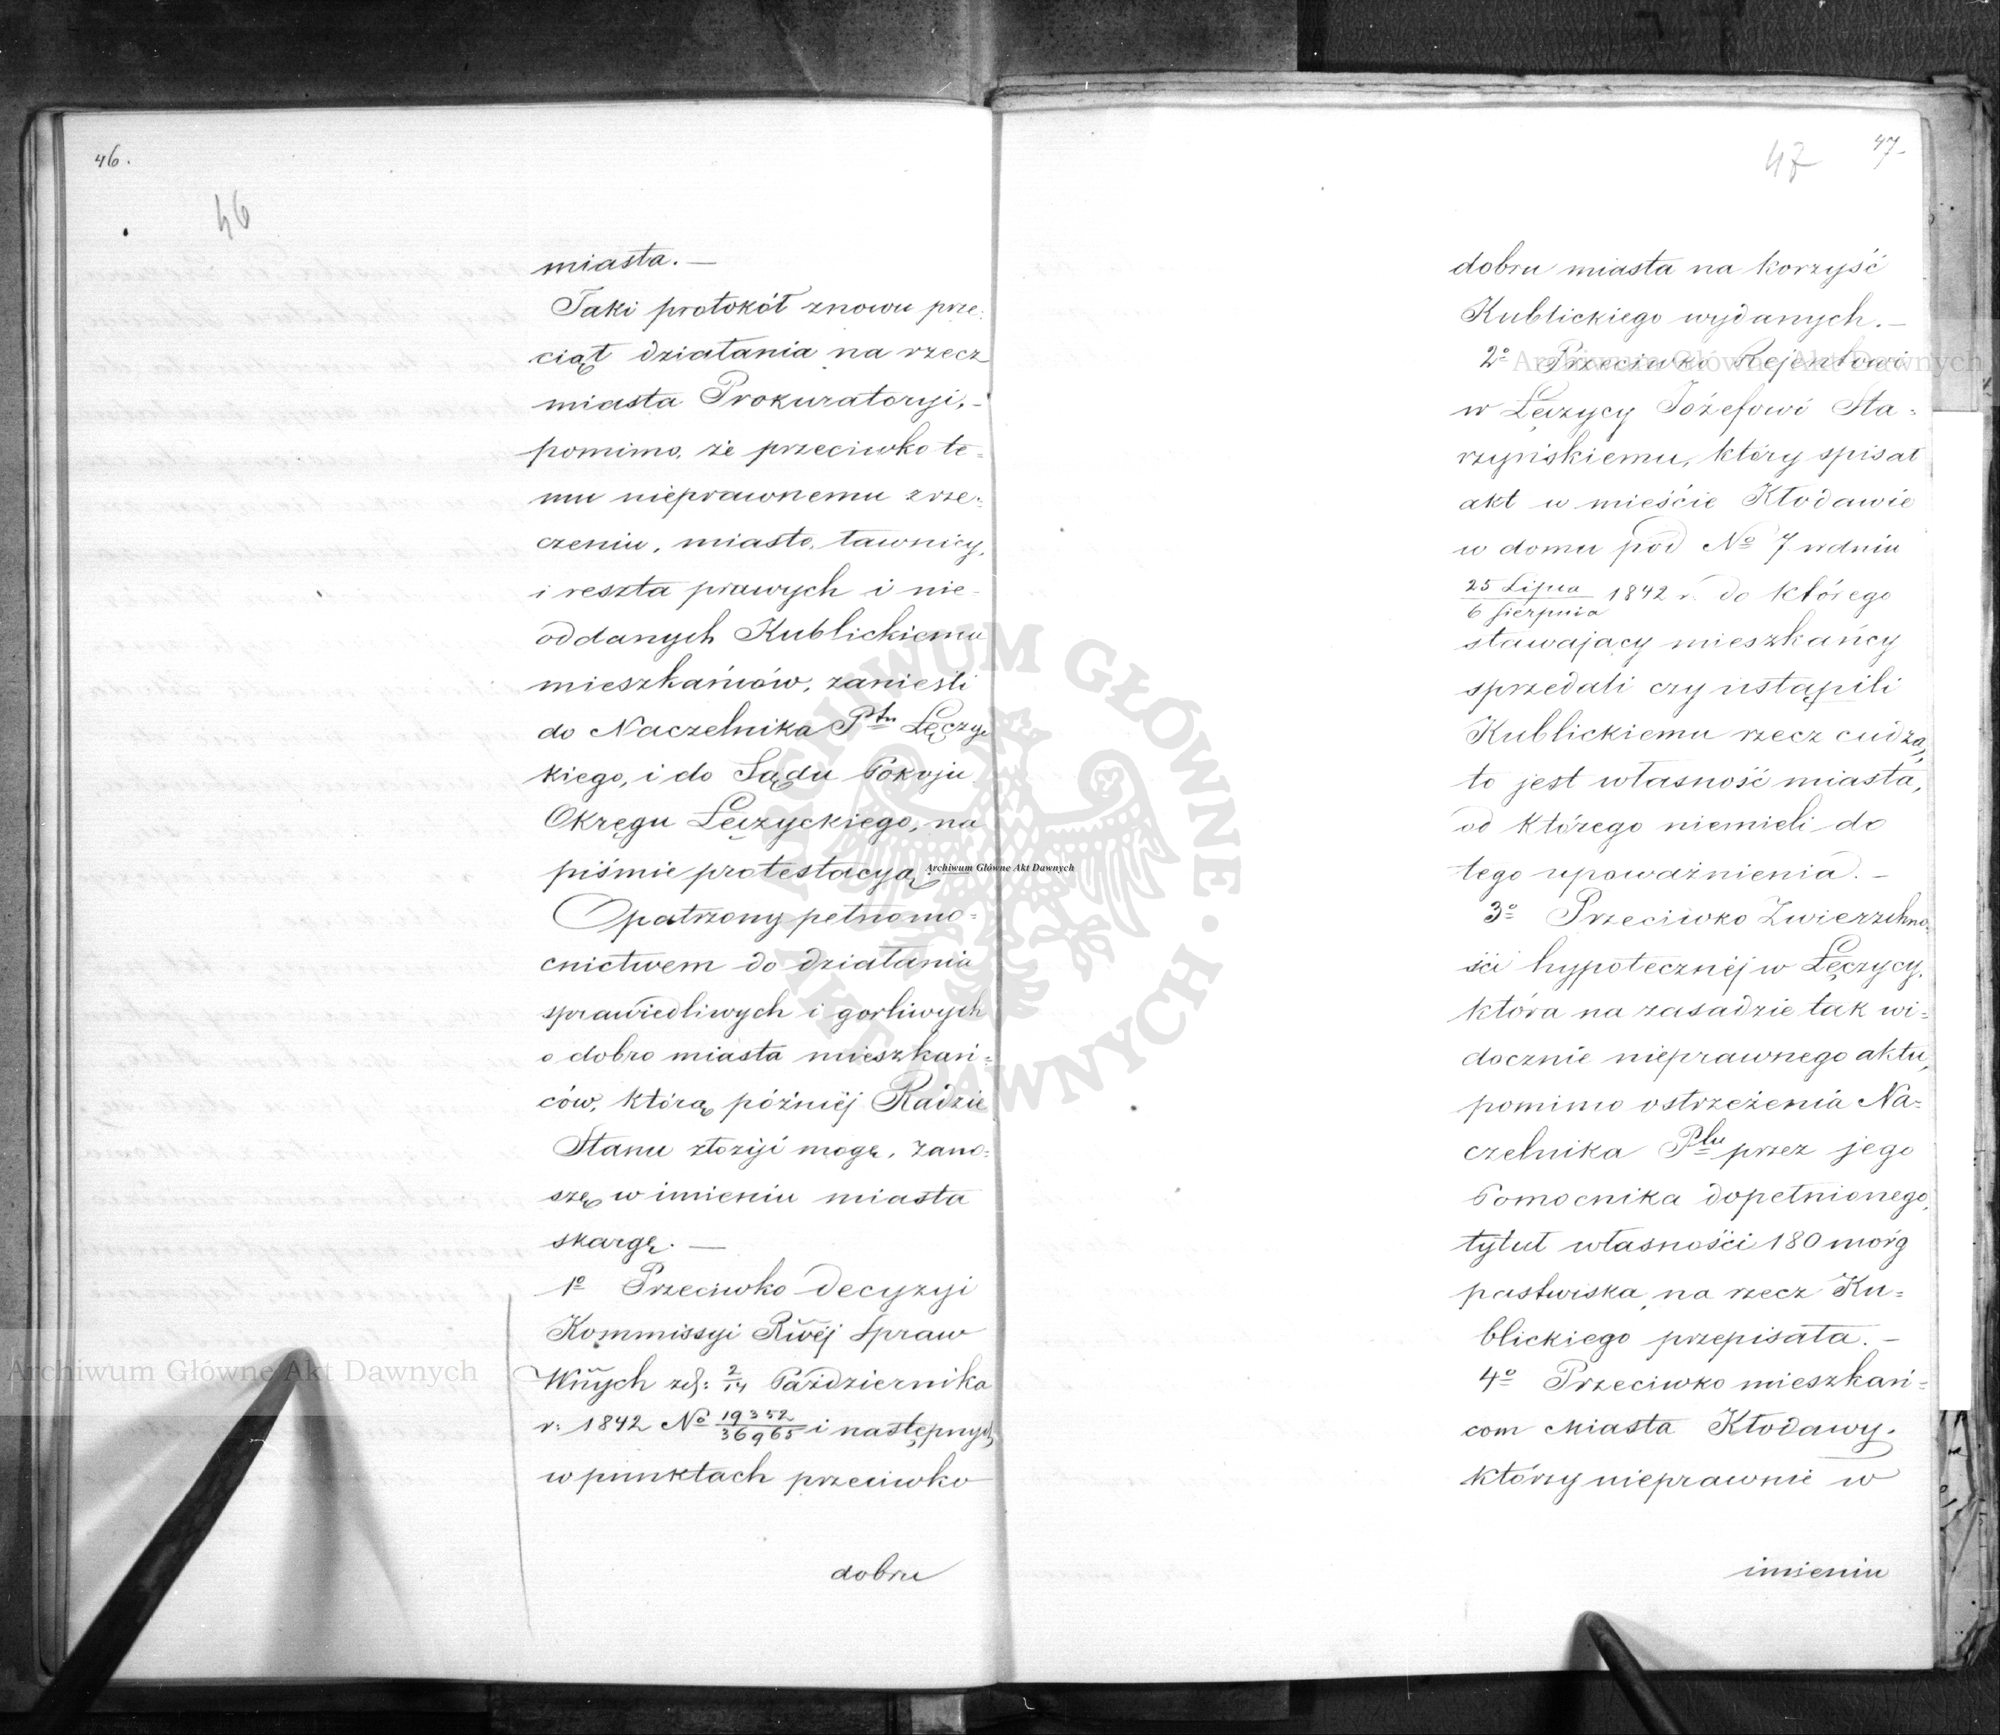 46.
46
miasta. —
Taki protokół znowu prze:
ciął działania na rzecz
miasta Prokuratoryi, -
pomimo, że przeciwko te=
mu nieprawnemu zrze=
czeniu, miasto, ławnicy,
i reszta prawych i nie-
oddanych Kublickiemu
mieszkańców, zanieśli
do Naczelnika Ptu Łęczyc
kiego, i do Sądu Pokoju
Okręgu Łęczyckiego, na
piśmie protestacyą.
Opatrzony pełnomo=
cnictwem do działania
sprawiedliwych i gorliwych
o dobro miasta mieszkań=
ców, którą późniéj Radzie
Stanu złożyć mogę, zano=
szę w imieniu miasta
skargę. —
1o Przeciwko decyzyi
Kommissyi Rwéj Spraw
Wnych zd: 2/14 Października
r: 1842 No 19352/36965 i następnych
w punktach przeciwko
dobru
47
47
dobru miasta na korzyść
Kublickiego wydanych. —
2o Przeciwko Rejentowi
w Łęczycy Józefowi Sta=
rzyńskiemu, który spisał
akt w mieście Kłodawie
w domu pod No 7 w dniu
25 Lipca/6 Sierpnia 1842 r. do którego
stawający mieszkańcy
sprzedali czy ustąpili
Kublickiemu rzecz cudzą,
to jest własność miasta,
od którego niemieli do
tego upoważnienia. —
3o Przeciwko Zwierzchno=
ści hypotecznéj w Łęczycy,
która na zasadzie tak wi=
docznie nieprawnego aktu,
pomimo ostrzeżenia Na=
czelnika Ptu przez jego
Pomocnika dopełnionego,
tytuł własności 180 morg
pastwiska, na rzecz Ku=
blickiego przepisała. —
4o Przeciwko mieszkań=
com Miasta Kłodawy,
którzy nieprawnie w
imieniu
Archiwum Główne Akt Dawnych
Archiwum Główne Akt Dawnych
Archiwum Główne Akt Dawnych
ARCHIWUM GŁÓWNE · AKT DAWNYCH ·